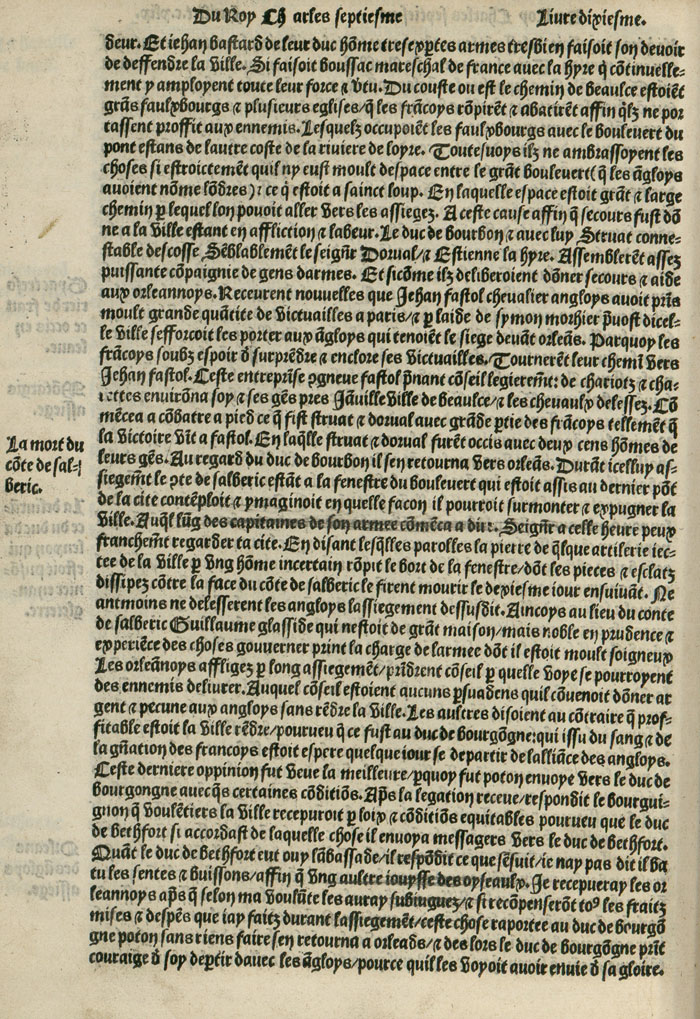 Du Roy Charles septiesme Liure dixiesme.
deur. Et iehan bastard de leur duc hõme tresexp̱tes armes tresbien faisoit son deuoir
de deffendre la ville. Si faisoit boussac mareschal de france auec la hyre q̃ cõtinuelle-
ment y amployent toute leur force ⁊ v̓tu. Du couste ou est le chemin de Beaulce estoiẽt
grãs faulxbourgs ⁊ plusieurs eglises/q̃ les frãcoys rõpirẽt ⁊ abatirẽt affin qlz ne por
tassent proffit aux ennemis. Lesquelz occupoiẽt les faulxbourgs auec le bouleuert du
pont estans de lautre coste de la riuiere de loyre. Toutesuoys ilz ne ambrassoyent les
choses si estroictemẽt quil ny eust moult despace entre le grãt bouleuert( q̃ les ãgloys
auoient nõme lõdres) ⁊ ce q̃ estoit a sainct loup. En laquelle espace estoit grãt ⁊ large
chemin p̱ lequel lon pouoit aller vers les assiegez. A ceste cause affin q̃ secours fust dõ
ne a la ville estant en affliction ⁊ labeur. Le duc de bourbon ⁊ auec luy Struat conne-
stable descosse Sẽblablemẽt le seignr̃ Dorual/⁊ Estienne la hyre. Assemblerẽt assez
puissante cõpaignie de gens darmes. Et sicõme ilz deliberoient dõner secours ⁊ aide
aux orleannoys. Receurent nouuelles que Jehan fastol cheualier angloys auoit prĩs
moult grande quãtite de victuailles a paris/⁊ p̱ laide de symon morhier p̃uost dicel-
le ville sefforcoit les porter aux ãgloys qui tenoiẽt le siege deuãt orleãs. Parquoy les
frãcoys soubz espoir d̓ surprẽdre ⁊ enclore ses victuailles. Tournerẽt leur chemĩ vers
Jehan fastol. Ceste entreprĩse ꝯgneue fastol p̃nant cõseil legieremẽt: de chariotz ⁊ cha-
rettes enuirõna soy ⁊ ses gẽs pres Jãuille ville de beaulce/⁊ les cheuaulx delessez. Cõ
mẽcea a cõbatre a pied ce q̃ fist struat ⁊ dorual auec grãde p̱tie des frãcoys tellemẽt q̃
la victoire vĩt a fastol. En laq̃lle struat ⁊ dorual furẽt occis auec deux cens hõmes de
leurs gẽs. Au regard du duc de bourbon il sen retourna vers orleãs. Durãt icelluy as-
La mort du
cõte de sal-
beric.
siegemẽt le ꝯte de salberic estãt a la fenestre du bouleuert qui estoit assis au dernier põt
de la cite contẽploit ⁊ ymaginoit en quelle facon il pourroit surmonter ⁊ expugner la
ville. Auq̃l lũg des capitaines de son armee cõmẽca a dire. Seignr̃ a celle heure peux
franchemẽt regarder ta cite. En disant lesq̃lles parolles la pierre de q̃lque artilerie iec-
tee de la ville p̱ vng hõme incertain rõpit le bort de la fenestre/dõt les pieces ⁊ esclatz
dissipez cõtre la face du cõte de salberic le firent mourir le dexiesme iour ensuiuãt. Ne
antmoins ne delesserent les angloys lassiegement dessusdit. Aincoys au lieu du conte
de salberic Guillaume glasside qui nestoit de grãt maison/mais noble en prudence ⁊
experiẽce des choses gouuerner print la charge de larmee dõt il estoit moult soigneux
Les orleãnoys affligez p̱ long assiegemẽt/prĩdrent cõseil p̱ quelle voye se pourroyent
des ennemis deliurer. Auquel cõseil estoient aucuns p̱suadens quil cõuenoit dõner ar
gent ⁊ pecune aux angloys sans rẽdre la ville. Les aultres disoient au cõtraire q̃ prof-
fitable estoit la ville rẽdre/pourueu q̃ ce fust au duc de bourgõgne: qui issu du sang ⁊ de
la gñation des francoys estoit espere quelque iour se departir de lalliãce des angloys.
Ceste derniere oppinion fut veue la meilleure/p̱quoy fut poton enuoye vers le duc de
bourgongne auecq̃s certaines cõditiõs. Ap̃s la legation receue/respondit le bourgui-
gnon q̃ voulẽtiers la ville recepuroit p̱ loix ⁊ cõditiõs equitables pourueu que le duc
de bethfort si accordast de laquelle chose il enuoya messagers vers le duc de bethfort.
Quãt le duc de bethfort eut ouy lãbassade/il respõdit ce que sẽsuit/ie nay pas dit il ba
tu les sentes ⁊ buissons/affin q̃ vng aultre iouysse des oyseaulx. Je recepueray les or
leannoys ap̃s q̃ selon ma voulũte les auray subiuguez/⁊ si recõpenserõt toꝰ les fraitz
mises ⁊ despẽs que iay faitz durant lassiegemẽt/ceste chose raportee au duc de bourgõ
gne poton sans riens faire sen retourna a orleads/⁊ des lors le duc de bourgõgne prĩt
couraige d̓ soy dep̱tir dauec les ãgloys/pource quil les voyoit auoir enuie d̓ sa gloire.